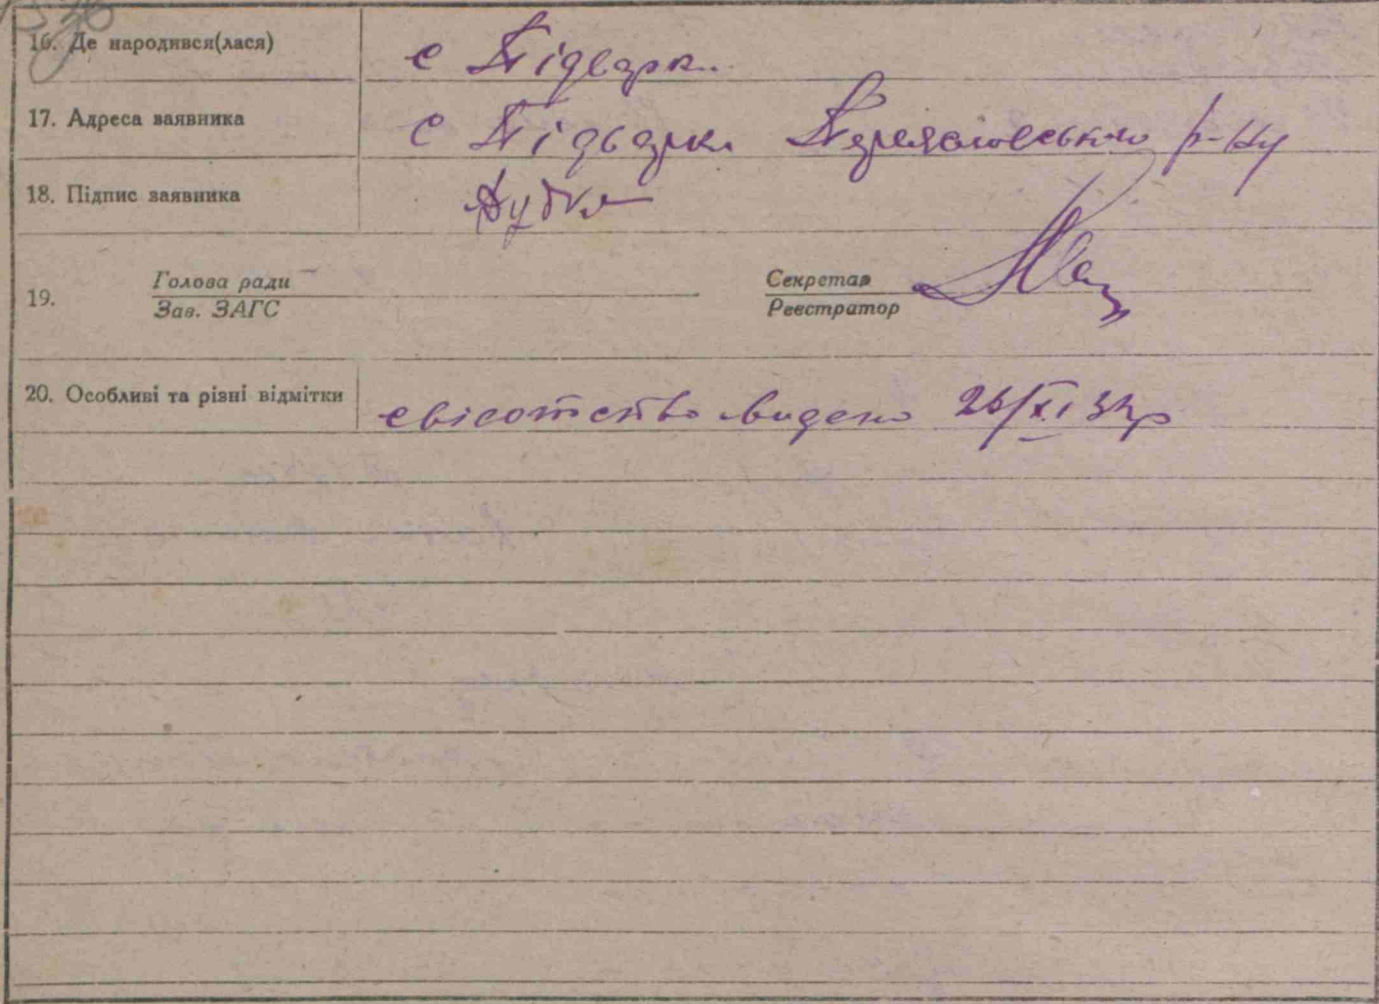 16. Де народився(лася) с Підварки
17. Адреса заявника с Підварки Переяславського р-ну
18. Підпис заявника
Голова ради Секретар
19.
Зав. ЗАГС Реєстратор
20. Особливі та різні відмітки свісотство видено 26/XI